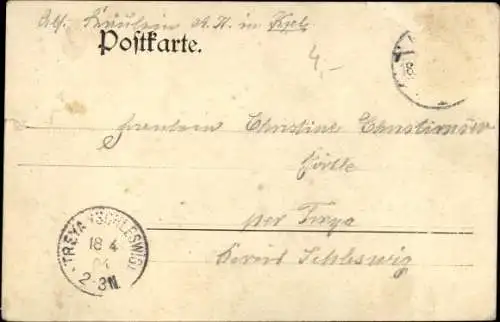 Abs. Fräulein A. H. in Kjel.
Postkarte.
4,-
18.
Fräulein Christine Christiansen
per Treya
Kreis Schleswig
TREYA (SCHLESWIG)
18 4
2-3N